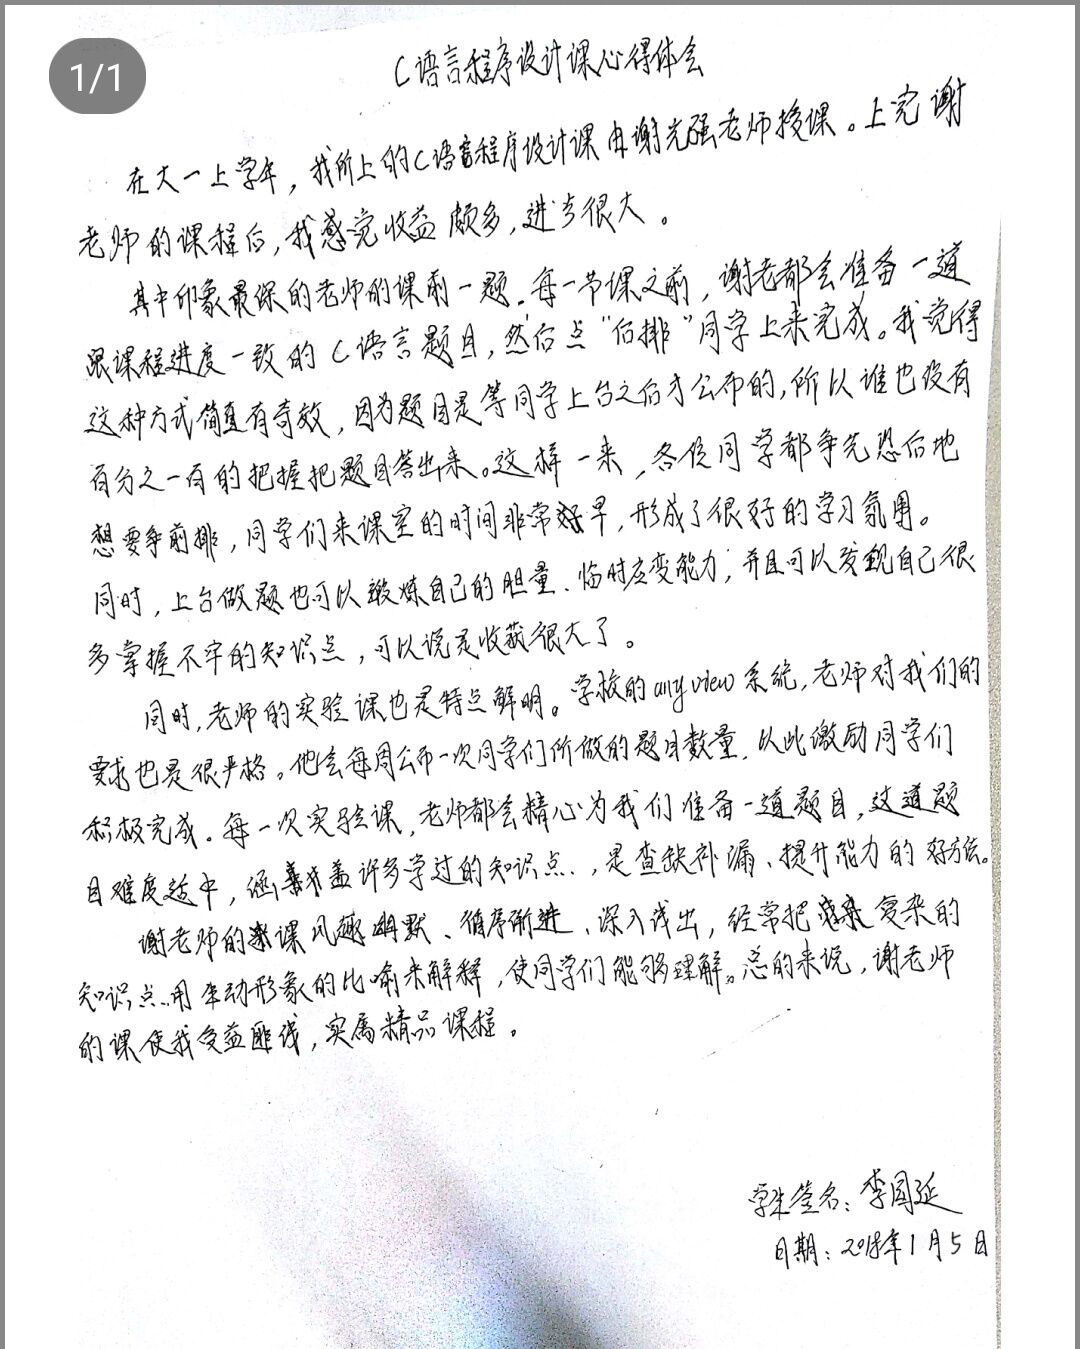 1/1
C语言程序设计课心得体会
在大一上学年，我所上的C语言程序设计课由谢光强老师授课。上完谢
老师的课程后，我感觉收益颇多，进步很大。
其中印象最深的老师的课前一题。每一节课之前，谢老都会准备一道
跟课程进度一致的C语言题目，然后点“后排”同学上来完成。我觉得
这种方式简直有奇效，因为题目是等同学上台之后才公布的，所以谁也没有
百分之一百的把握把题目答出来。这样一来，各位同学都争先恐后地
想要争前排，同学们来课室的时间非常早，形成了很好的学习氛围。
同时，上台做题也可以锻炼自己的胆量、临时应变能力，并且可以发现自己很
多掌握不牢的知识点，可以说是收获很大了。
同时，老师的实验课也是特点鲜明。学校的anyview系统，老师对我们的
要求也是很严格。他会每周公布一次同学们所做的题目数量，以此激励同学们
积极完成。每一次实验课，老师都会精心为我们准备一道题目，这道题
目难度适中，涵盖许多学过的知识点，是查缺补漏、提升能力的好方法。
谢老师的课风趣幽默、循序渐进、深入浅出，经常把复杂的
知识点用生动形象的比喻来解释，使同学们能够理解。总的来说，谢老师
的课使我受益匪浅，实属精品课程。
学生签名：李国延
日期：2018年1月5日